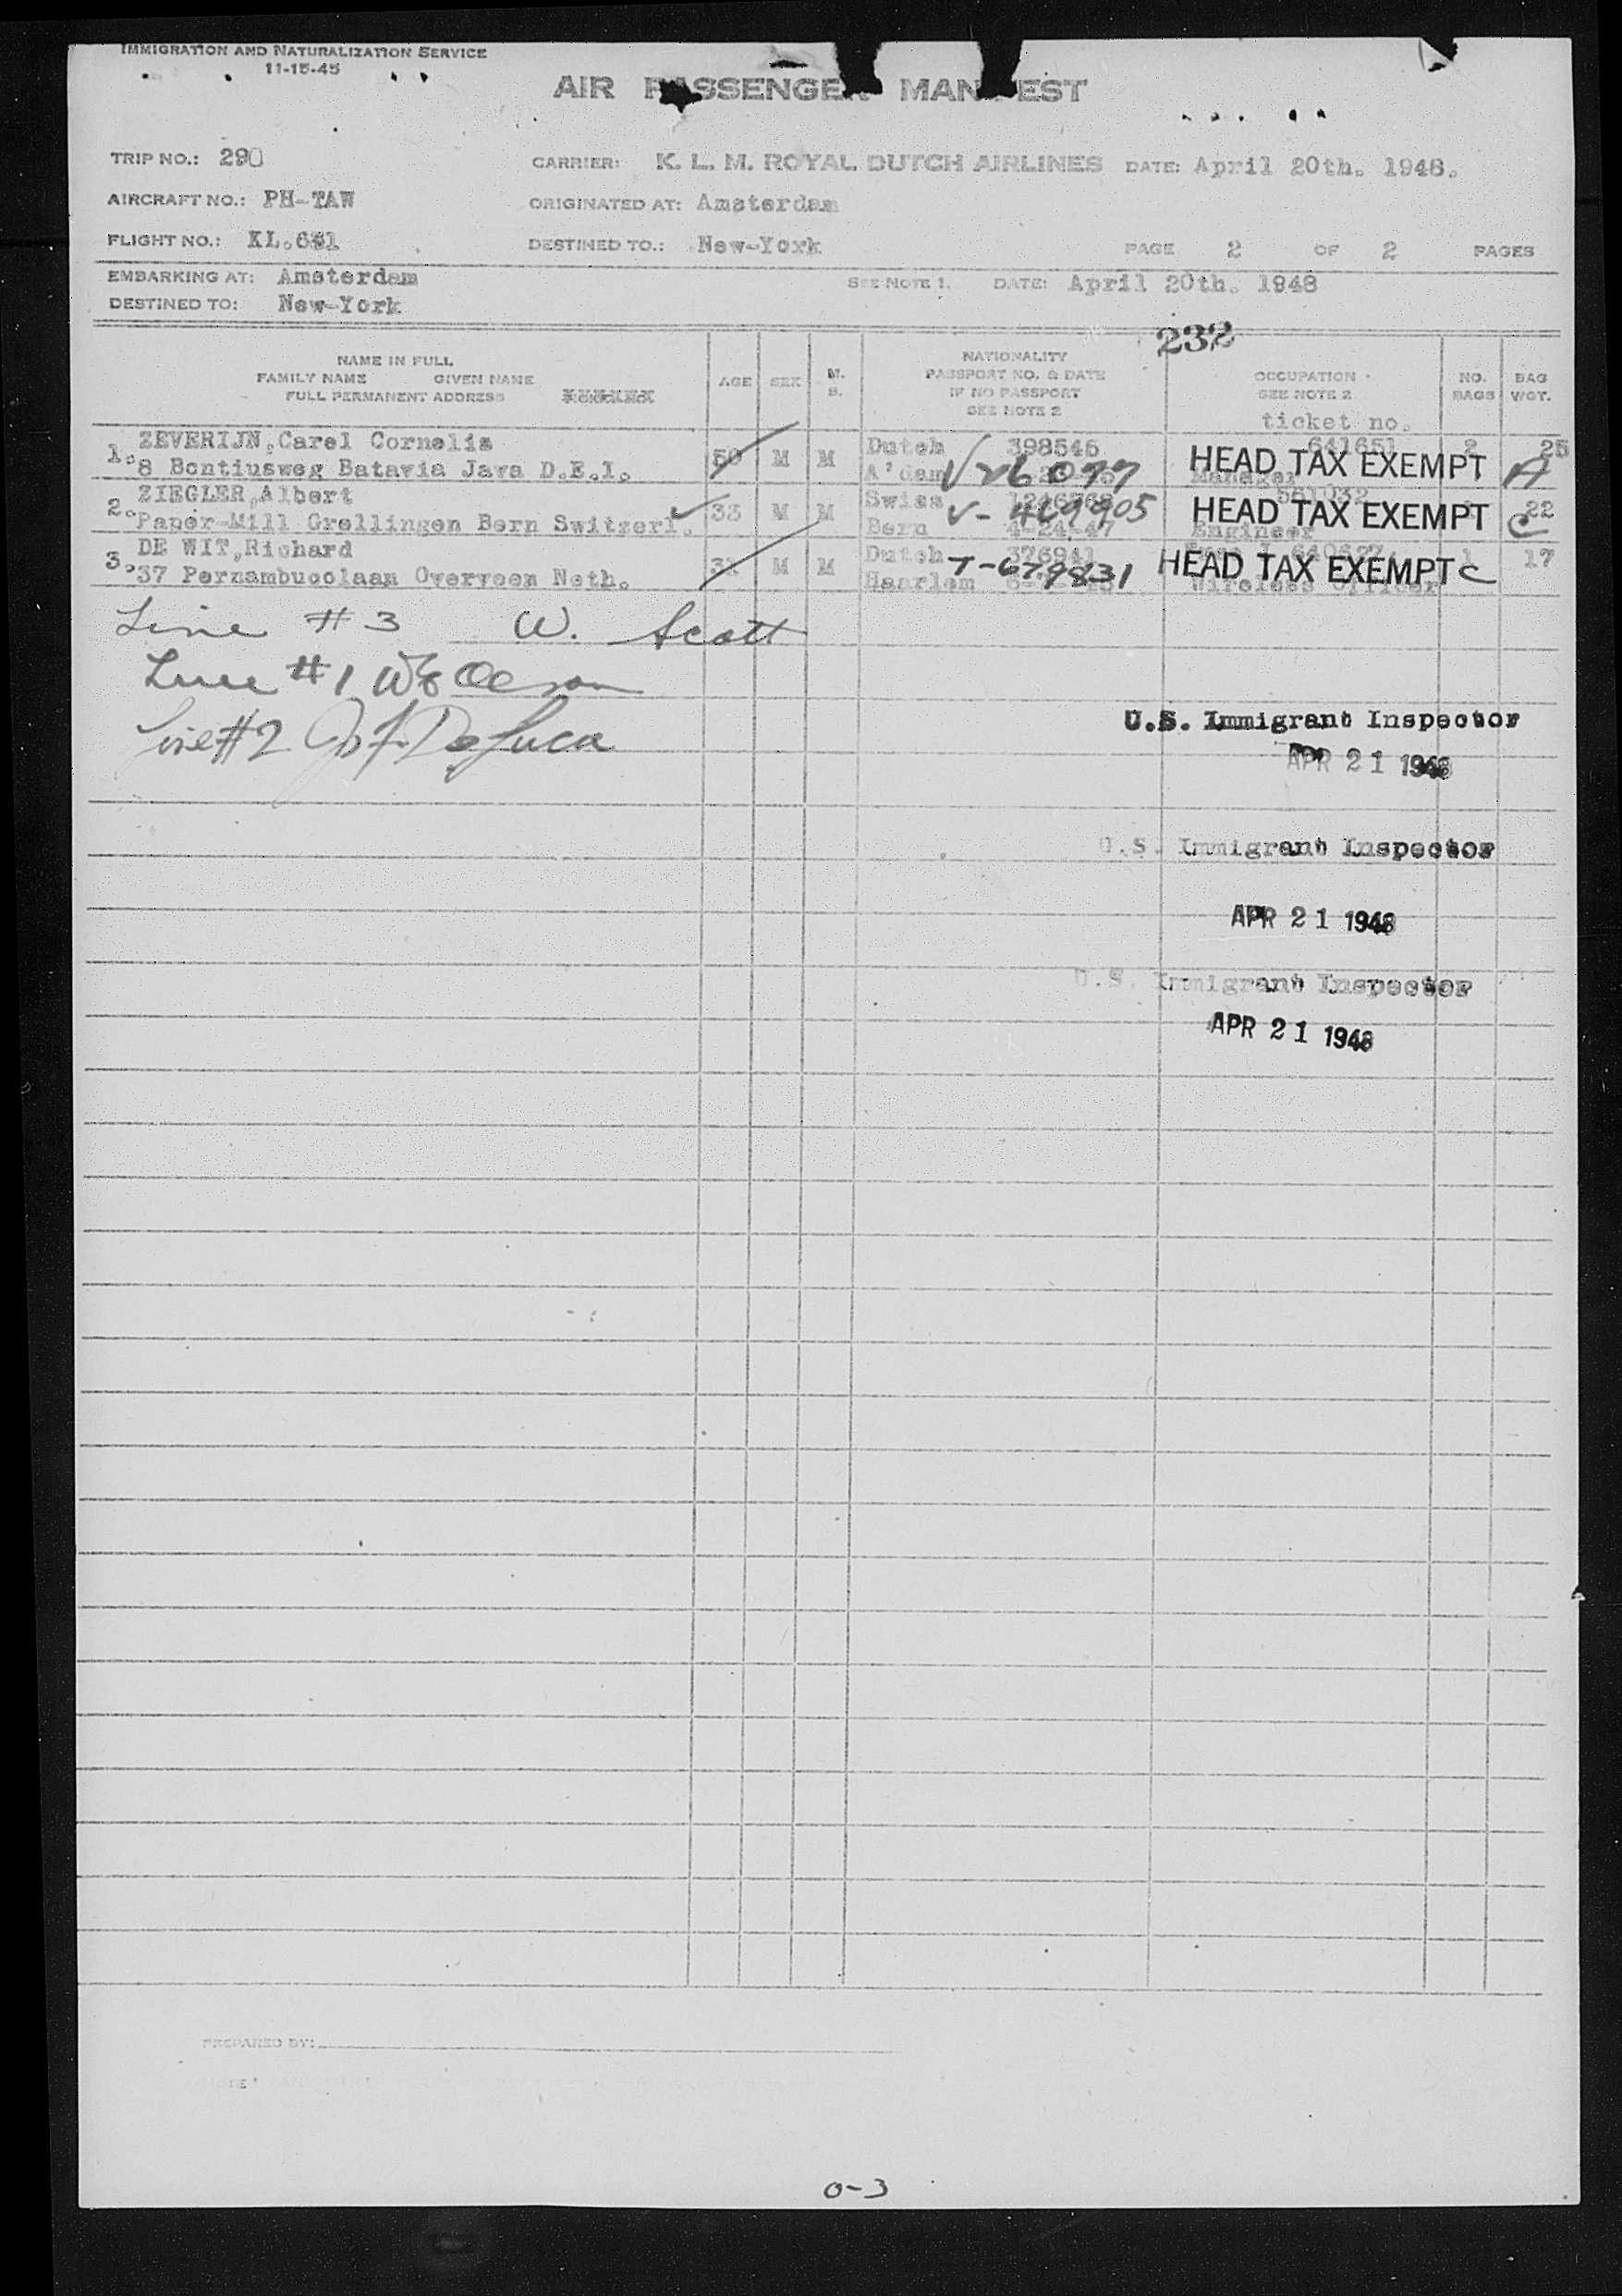 IMMIGRATION AND NATURALIZATION SERVICE
11-15-45
AIR PASSENGER MANIFEST
TRIP NO.: 290 CARRIER: K. L. M. ROYAL DUTCH AIRLINES DATE: April 20th. 1948.
AIRCRAFT NO.: PH-TAW ORIGINATED AT: Amsterdam
FLIGHT NO.: KL.651 DESTINED TO.: New-York PAGE 2 OF 2 PAGES
EMBARKING AT: Amsterdam SEE NOTE 1. DATE: April 20th. 1948
DESTINED TO: New-York
232
NAME IN FULL
FAMILY NAME GIVEN NAME
FULL PERMANENT ADDRESS
AGE SEX M. S.
NATIONALITY
PASSPORT NO. & DATE
IF NO PASSPORT
SEE NOTE 2
OCCUPATION
SEE NOTE 2
ticket no.
NO. BAGS
BAG WGT.
1. ZEVERIJN,Carel Cornelis 50 M M Dutch 398546 641651 2 25
8 Bontiusweg Batavia Java D.E.I. A'dam V26077 Manager HEAD TAX EXEMPT A
2. ZIEGLER,Albert 33 M M Swiss 1246568 561032 22
Paper-Mill Grellingen Bern Switzerl. Bern 4-24-47 V-469905 Engineer HEAD TAX EXEMPT C
3. DE WIT,Richard 31 M M Dutch 376941 1 17
37 Pernambucolaan Overveen Neth. Haarlem T-679831 Wireless Officer HEAD TAX EXEMPT C
Line #3 W. Scott
Line #1 WE Olson
Line #2 J. F. DeLuca
U.S. Immigrant Inspector
APR 21 1948
U.S. Immigrant Inspector
APR 21 1948
U.S. Immigrant Inspector
APR 21 1948
PREPARED BY:
0-3